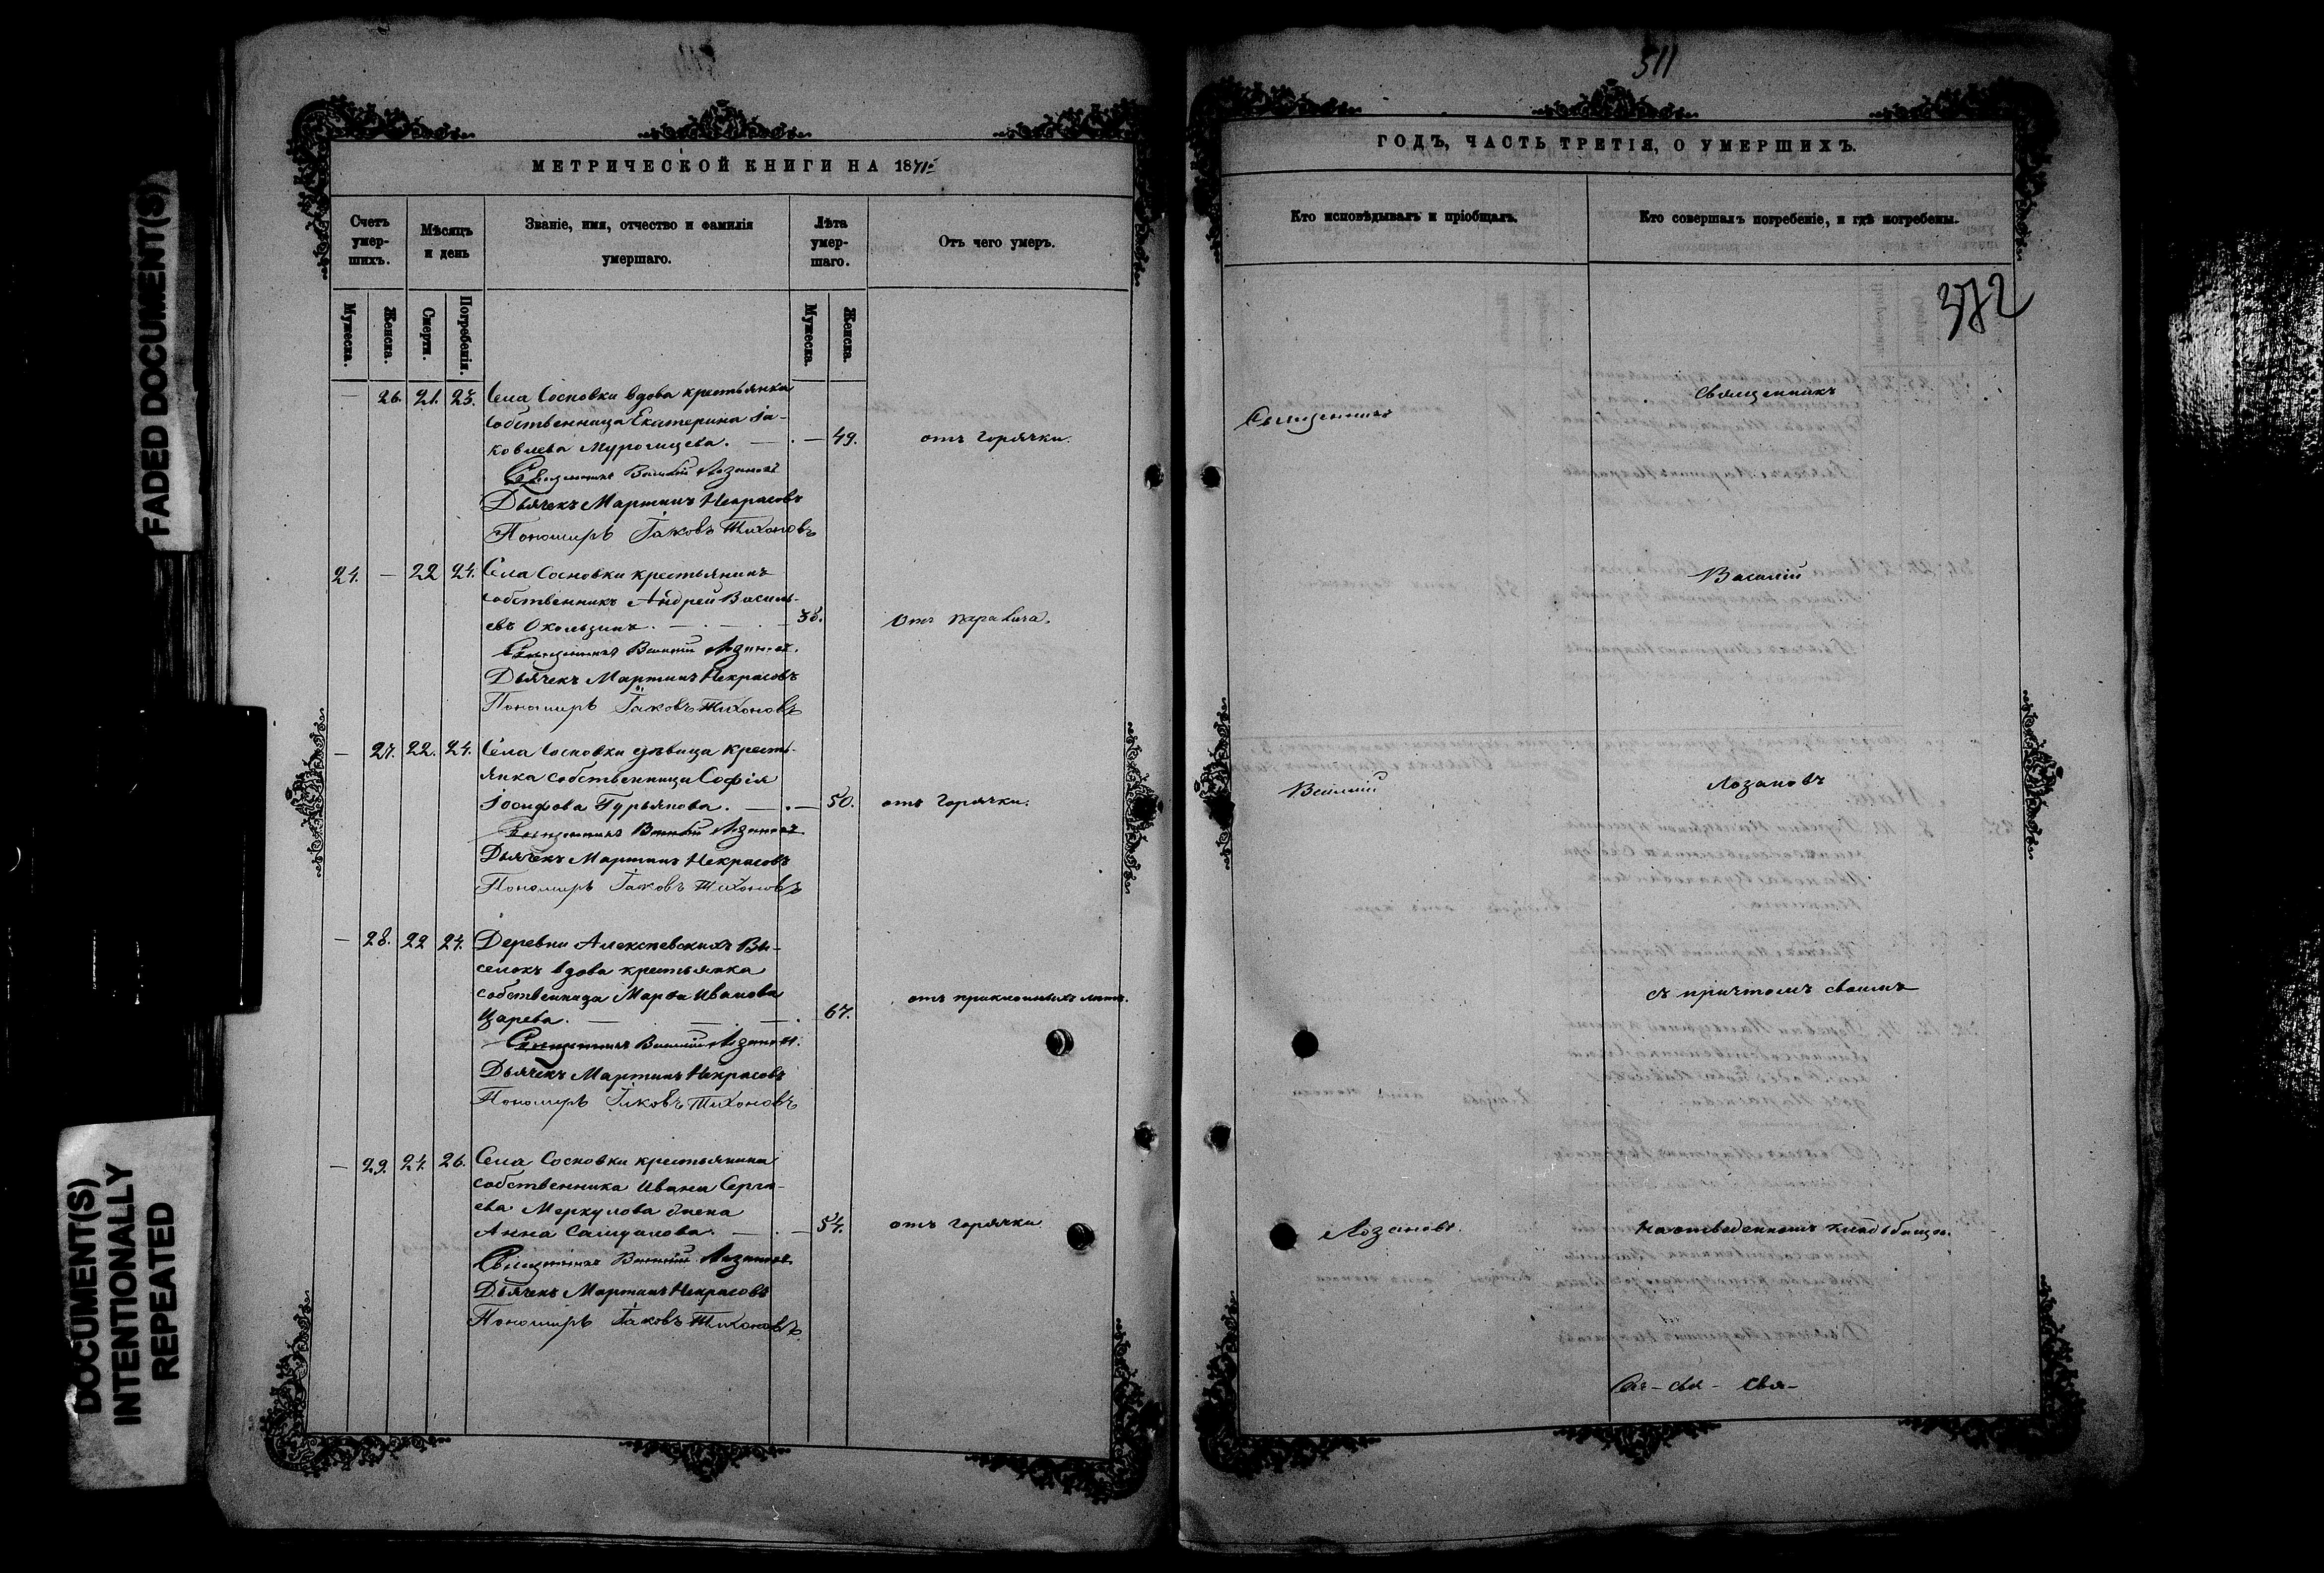 FADED DOCUMENT(S)
DOCUMENT(S)
INTENTIONALLY
REPEATED
МЕТРИЧЕСКОЙ КНИГИ НА 1871й
Счетъ умер-шихъ.
Мѣсяцъ и день
Званіе, имя, отчество и фамилія умершаго.
Лѣта умер-шаго.
Отъ чего умеръ.
Мужеска.
Женска.
Смерти.
Погребенія.
Мужеска.
Женска.
— 26. 21. 23. Села Сосновки вдова крестьянка
собственница Екатерина Іа-
ковлева Муромцева. — . — 49. отъ горячки.
Священникъ Василій Лозановъ
Дьячекъ Мартинъ Некрасовъ
Пономарь Іаковъ Тихоновъ
24. — 22 24. Села Сосновки крестьянинъ
собственникъ Андрей Василь-
евъ Окользинъ. 38. Отъ паралича.
Священникъ Василій Лозановъ.
Дьячекъ Мартинъ Некрасовъ
Пономарь Іаковъ Тихоновъ
— 27. 22. 24. Села Сосновки дѣвица кресть-
янка собственница Софія
Іосифова Гурьянова. — . — 50. отъ горячки.
Священникъ Василій Лозановъ
Дьячекъ Мартинъ Некрасовъ
Пономарь Іаковъ Тихоновъ
— 28. 22 24. Деревни Алексѣевскихъ Вы-
селокъ вдова крестьянка
собственница Марѳа Иванова
Царева. — — — . 67. отъ преклонныхъ лѣтъ.
Священникъ Василій Лозановъ.
Дьячекъ Мартинъ Некрасовъ
Пономарь Іаковъ Тихоновъ
— 29. 24. 26. Села Сосновки крестьянина
собственника Ивана Сергѣ-
ева Меркулова жена
Анна Самуилова. — . — 54. отъ горячки
Священникъ Василій Лозановъ
Дьячекъ Мартинъ Некрасовъ
Пономарь Іаковъ Тихоновъ
511
ГОДЪ, ЧАСТЬ ТРЕТІЯ, О УМЕРШИХЪ.
Кто исповѣдывалъ и пріобщалъ.
Кто совершалъ погребеніе, и гдѣ погребены.
372
Священникъ
Священникъ
Василій
Василій
Лозановъ
съ причтомъ своимъ
Лозановъ.
на отведенномъ кладбищѣ.